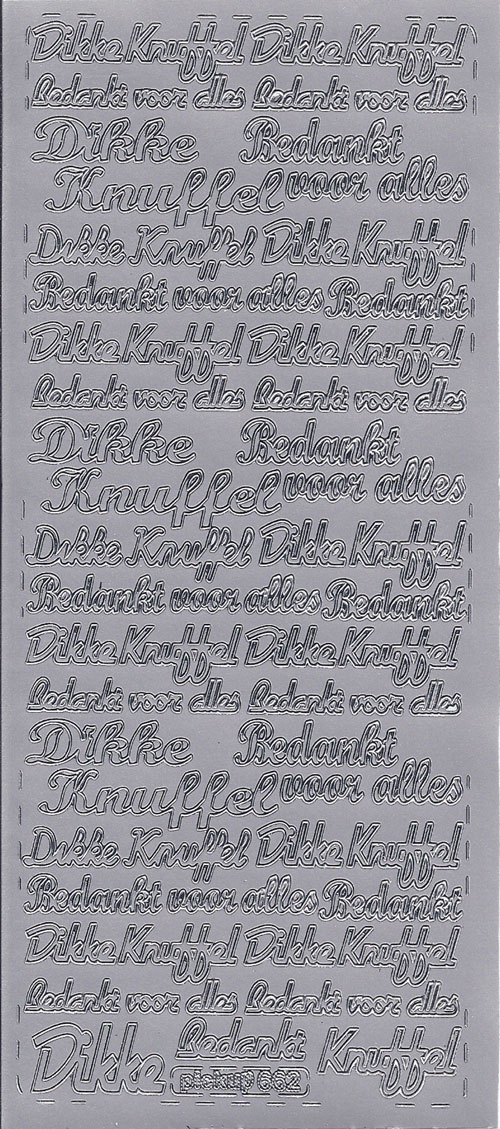 Dikke Knuffel Dikke Knuffel
Bedankt voor alles Bedankt voor alles
Dikke Bedankt
Knuffel voor alles
Dikke Knuffel Dikke Knuffel
Bedankt voor alles Bedankt
Dikke Knuffel Dikke Knuffel
Bedankt voor alles Bedankt voor alles
Dikke Bedankt
Knuffel voor alles
Dikke Knuffel Dikke Knuffel
Bedankt voor alles Bedankt
Dikke Knuffel Dikke Knuffel
Bedankt voor alles Bedankt voor alles
Dikke Bedankt
Knuffel voor alles
Dikke Knuffel Dikke Knuffel
Bedankt voor alles Bedankt
Dikke Knuffel Dikke Knuffel
Bedankt voor alles Bedankt voor alles
Dikke Bedankt Knuffel
pickup 662